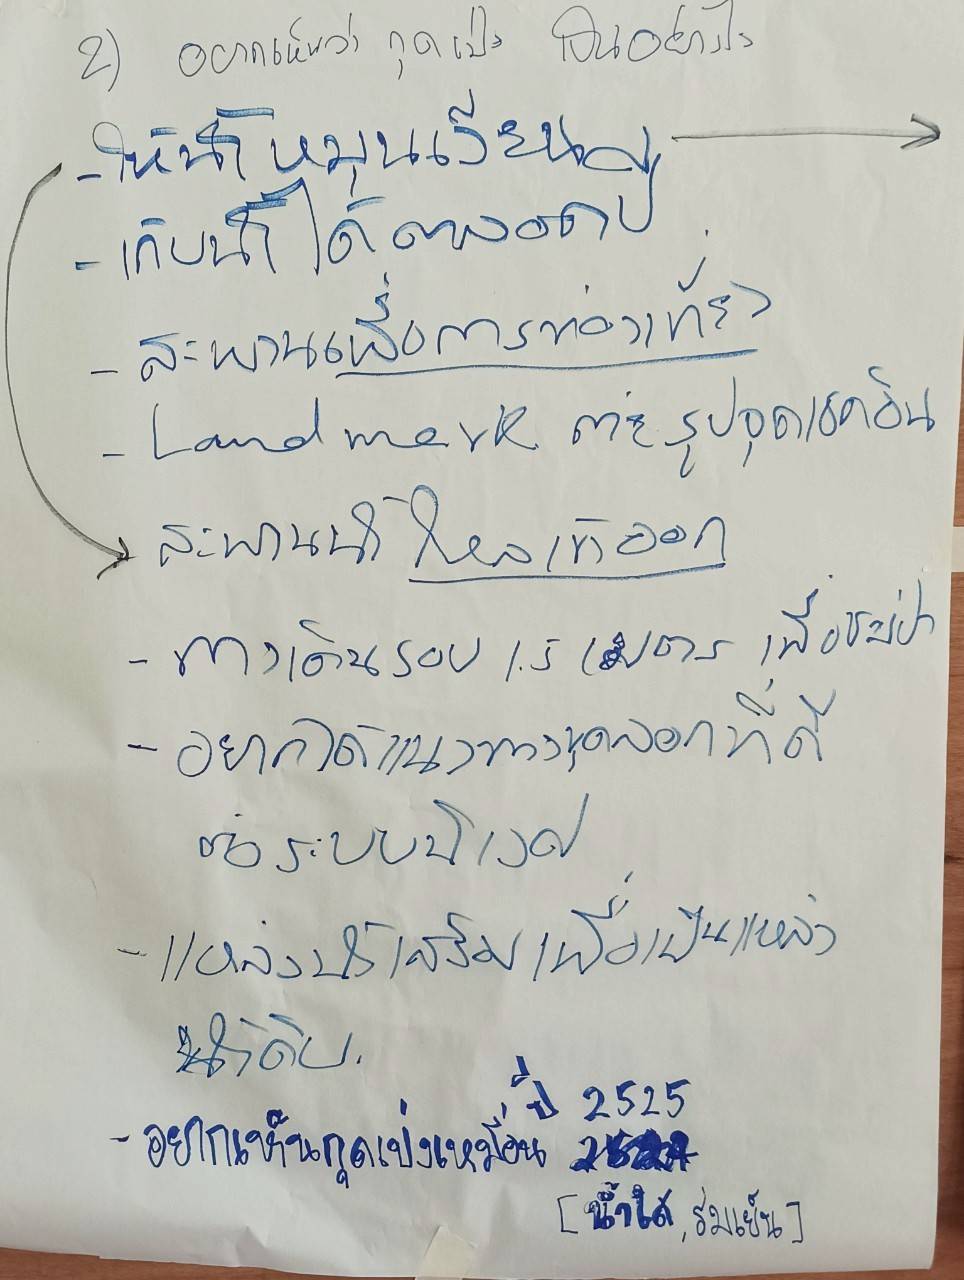 2) อยากเห็นว่า กุดเป่ง เป็นอย่างไร
- ให้น้ำหมุนเวียน
- เก็บน้ำได้ตลอดปี
- สะพานเพื่อการท่องเที่ยว
- Land mark รูปจุดเชคอิน
- สะพานน้ำไหลเข้าออก
- ทางเดินรอบ 1.5 เมตร เพื่อชมป่า
- อยากได้แนวทางขุดลอกที่ดี
ต่อระบบนิเวศ
- แหล่งน้ำเสริมเพื่อเป็นแหล่ง
น้ำดิบ.
- อยากเห็นกุดเป่งเหมือน ปี 2525
[น้ำใส, ร่มเย็น]